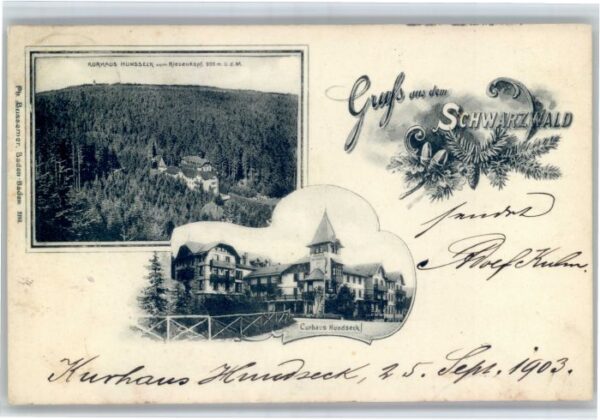 KURHAUS HUNDSECK vom Riesenkopf
Gruß aus dem
SCHWARZWALD
Ph. Bussemer, Baden-Baden
sendet
Adolf Kuhm.
Curhaus Hundseck
Kurhaus Hundseck, 25. Sept. 1903.